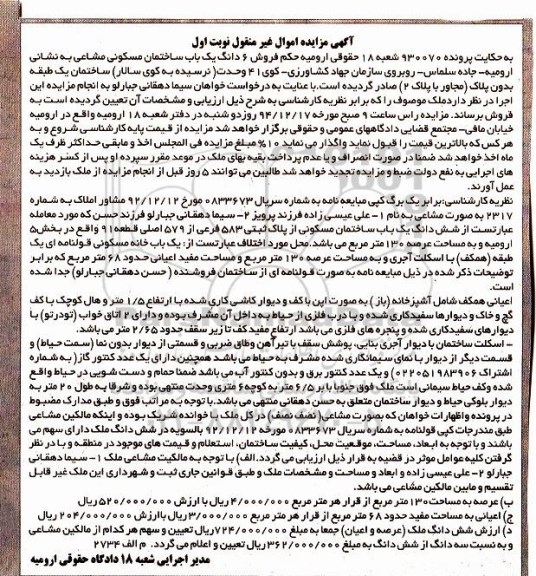 آگهی مزایده اموال غیر منقول نوبت اول
به حکایت پرونده ۹۳۰۰۷۰ شعبه ۱۸ حقوقی ارومیه حکم فروش ۶ دانگ یک باب ساختمان مسکونی مشاعی به نشانی
ارومیه- جاده سلماس- روبروی سازمان جهاد کشاورزی- کوی ۴۱ وحدت( نرسیده به کوی سالار) ساختمان یک طبقه
بدون پلاک (مجاور با پلاک ۲) صادر گردیده است.با عنایت به درخواست خواهان سیما دهقانی جبارلو به انجام مزایده این
اجرا در نظر دارد ملک موصوف را که برابر نظریه کارشناسی به شرح ذیل ارزیابی و مشخصات آن تعیین گردیده است به
فروش برساند. مزایده راس ساعت ۹ صبح مورخه ۹۴/۱۲/۱۷ روز دو شنبه در دفتر شعبه ۱۸ ارومیه واقع در ارومیه
خیابان مافی- مجتمع قضایی دادگاههای عمومی و حقوقی برگزار خواهد شد مزایده از قیمت پایه کارشناسی شروع و به
هر کس که بالاترین قیمت را قبول نماید واگذار می نماید ۱۰% مبلغ مزایده فی المجلس اخذ و مابقی حداکثر ظرف یک
ماه اخذ خواهد شد ضمنا در صورت انصراف و یا عدم پرداخت بقیه بهای ملک در موعد مقرر سپرده او پس از کسر هزینه
های اجرایی به نفع دولت ضبط و مزایده تجدید خواهد شد طالبین می توانند ۵ روز قبل از انجام مزایده از ملک بازدید به
عمل آورند.
نظریه کارشناسی:برابر یک برگ کپی مبایعه نامه به شماره سریال ۰۸۳۳۶۷۳ مورخ ۹۲/۱۲/۱۲ مشاور املاک به شماره
۲۳۱۷ به صورت مشاعی به نام ۱- علی عیسی زاده فرزند پرویز ۲- سیما دهقانی جبارلو فرزند حسن که مورد معامله
عبارتست از شش دانگ یک باب ساختمان مسکونی از پلاک ثبتی ۵۸۳ فرعی از ۵۷۹ اصلی قطعه ۹۱ واقع در بخش ۵
ارومیه و به مساحت عرصه ۱۳۰ متر مربع می باشد.محل مورد اختلاف عبارتست از: یک باب خانه مسکونی قولنامه ای یک
طبقه (همکف) با اسکلت آجری و به مساحت عرصه ۱۳۰ متر مربع و مساحت مفید اعیانی حدود ۶۸ متر مربع که برابر
توضیحات ذکر شده در ذیل مبایعه نامه به صورت قولنامه ای از ساختمان فروشنده ( حسن دهقانی جبارلو) جدا شده
است.
اعیانی همکف شامل آشپزخانه (باز) به صورت اپن با کف و دیوار کاشی کاری شده با ارتفاع ۱/۵ متر و هال کوچک با کف
گچ و خاک و دیوارها سفیدکاری شده و با درب فلزی از حیاط به داخل آن مشرف بوده و دارای ۲ اتاق خواب (تودرتو) با
دیوارهای سفیدکاری شده و پنجره های فلزی می باشد ارتفاع مفید کف تا زیر سقف حدود ۲/۶۵ متر می باشد.
- اسکلت ساختمان با دیوار آجری بنایی، پوشش سقف با تیرآهن وطاق ضربی و قسمتی از دیوار بدون نما (سمت حیاط) و
قسمت دیگر از دیوار با نمای سیمانکاری شده مشرف به حیاط می باشد همچنین دارای یک عدد کنتور گاز( به شماره
اشتراک ۰۲۲۰۵۱۹۸۳۹۰۶) و یک عدد کنتور برق و بدون کنتور آب می باشد ضمنا حمام و دست شویی در حیاط واقع
شده وکف حیاط سیمانی است ملک فوق جنوبا با بر ۶/۵ متر به کوچه ۶ متری وحدت منتهی بوده و شرقا به طول ۲۰ متر به
دیوار بلوکی حیاط و دیوار ساختمان متعلق به حسن دهقانی منتهی می باشد. با توجه به مراتب فوق و طبق مدارک مضبوط
در پرونده و اظهارات خواهان که بصورت مشاعی (نصف نصف) در کل ملک با خوانده شریک بوده و اینکه مالکین مشاعی
طبق مندرجات کپی قولنامه به شماره سریال ۰۸۳۳۶۷۳ مورخ ۹۲/۱۲/۱۲ بالسویه در شش دانگ ملک دارای سهم می
باشند و با توجه به ابعاد، مساحت، موقعیت محل، کیفیت ساختمان، استعلام و قیمت های موجود در منطقه و با در نظر
گرفتن کلیه عوامل موثر در قضیه به قرار ذیل ارزیابی می گردد.الف) با توجه به مالکیت مشاعی ملک ۱- سیما دهقانی
جبارلو ۲- علی عیسی زاده و ابعاد و مساحت و مشخصات ملک و طبق قوانین جاری ثبت و شهرداری این ملک غیر قابل
تقسیم و مابین مالکین مشاعی می باشد.
ب) عرصه به مساحت ۱۳۰ متر مربع از قرار هر متر مربع ۴/۰۰۰/۰۰۰ ریال با ارزش ۵۲۰/۰۰۰/۰۰۰ ریال
ج) اعیانی به مساحت مفید حدود ۶۸ متر مربع از قرار هر متر مربع ۳/۰۰۰/۰۰۰ ریال باارزش ۲۰۴/۰۰۰/۰۰۰ ریال
د) ارزش شش دانگ ملک (عرصه و اعیان) جمعا به مبلغ ۷۲۴/۰۰۰/۰۰۰ ریال تعیین و سهم هر کدام از مالکین مشاعی
و به نسبت سه دانگ از شش دانگ به مبلغ ۳۶۲/۰۰۰/۰۰۰ ریال تعیین و اعلام می گردد. م الف ۲۷۳۴
مدیر اجرایی شعبه ۱۸ دادگاه حقوقی ارومیه